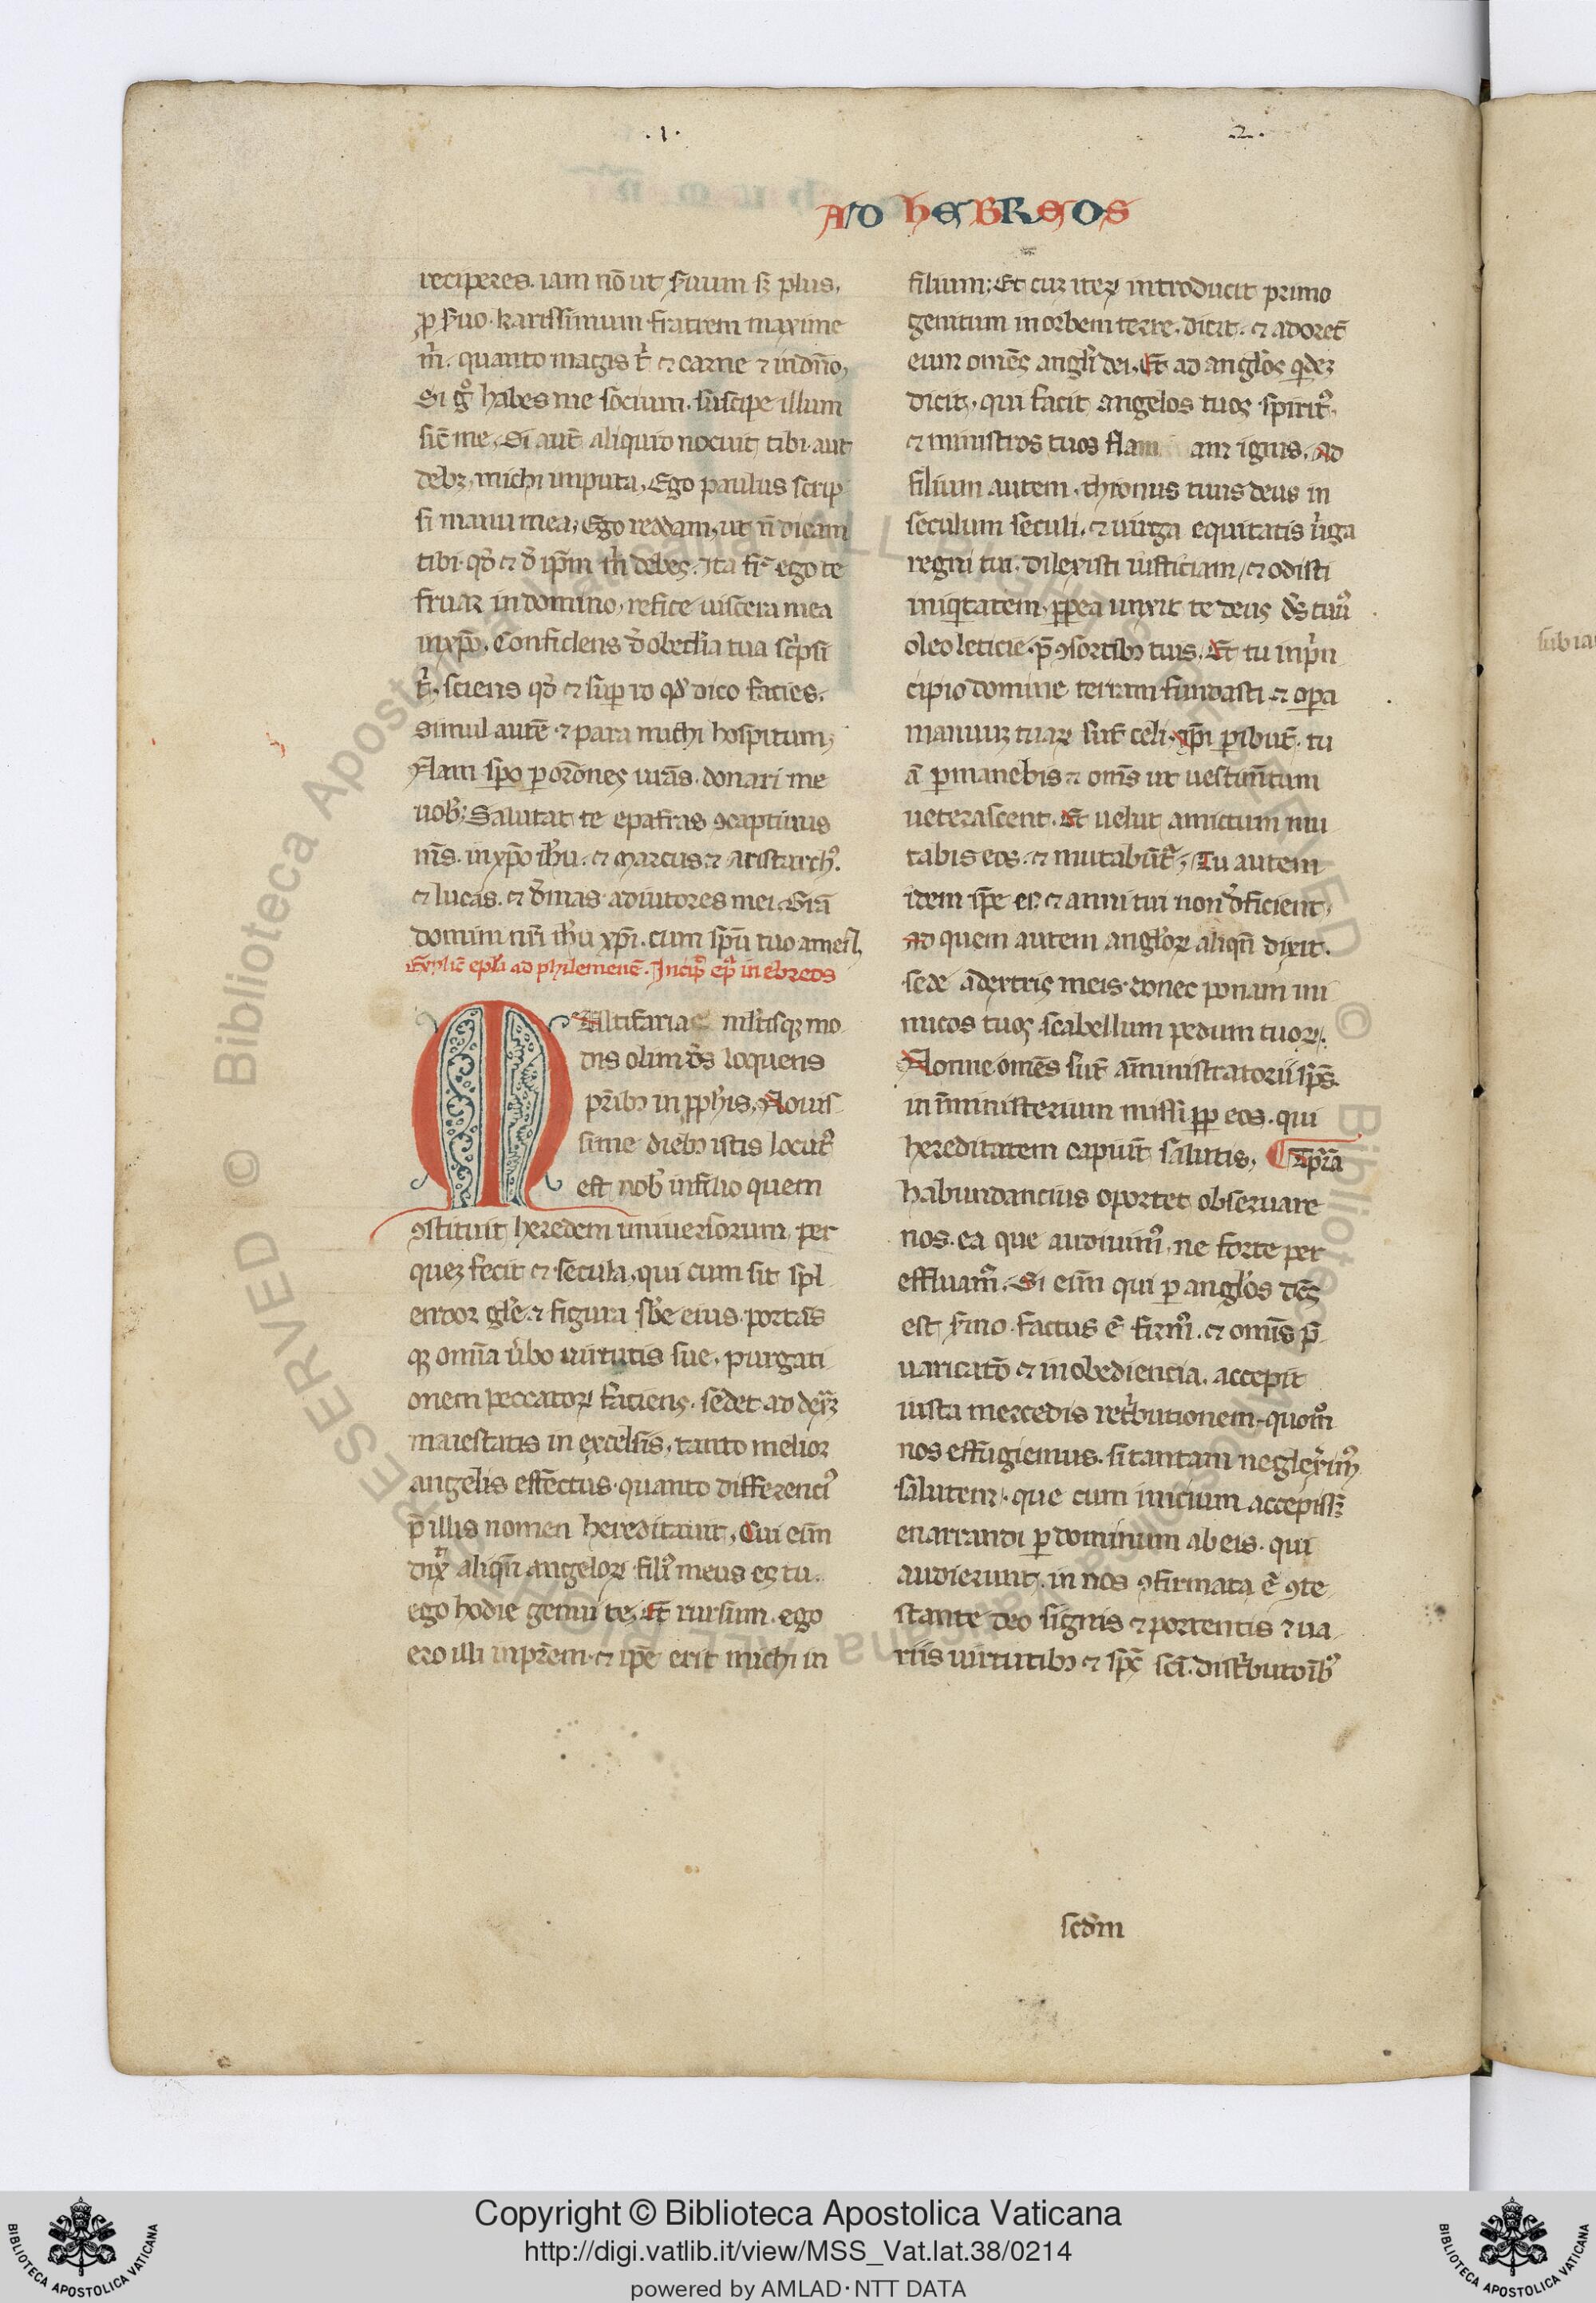 .1. 2.
AD HEBREOS
reciperes. iam nō ut ẜuum sꝫ plus,
ꝓ ẜuo. karissimum fratrem maxime
m̍. quanto magis t̍ ⁊ carne ⁊ in dn̄o,
Si gͦ habes me socium. suscipe illum
sic̄ me. Si aut̄ aliquid nocuit tibi. aut
debꝫ. michi imputa. Ego paulus scrip
si manu mea. Ego reddam, ut n̄ dicam
tibi. qd̓ ⁊ d̓ ip̄m m̍ debes. Ita fr̄ ego te
fruar in domino, refice uiscera mea
in xp̄o. Confidens d̓ obedīa tua sc̍psi
t̍, sciens qd̓ ⁊ suꝑ id qd̓ dico facies.
Simul autē ⁊ para michi hospitium,
Nam sp̄o ꝑ or̄ones ur̄as. donari me
uob̓; Salutat te epafras ꝯcaptiuus
m̄s. in xp̄o ih̄u. ⁊ marcus ⁊ aristarchꝰ.
⁊ lucas. ⁊ d̓mas adiutores mei. Gr̄a
domini nr̄i ih̄u xp̄i. cum sp̄u tuo amen,
Explic̄ epl̄a ad philemonē. Incip̄ ep̄l̄a in ebreos
MUltifariae ml̍tisqꝫ mo
dis olim d̓s loquens
pr̄ibꝫ in ꝓph̍is, Nouis
sime diebꝫ istis locutꝰ
est nob̓ in filio quem
ꝯstituit heredem uniuersorum, per
quez fecit ⁊ secula, qui cum sit spl
endor gl̓e ⁊ figura sb̓e eius. portās
qꝫ omīa u̍bo uirtutis sue, purgati
onem peccatoꝝ faciens. sedet ad dexꝫ
maiestatis in excelsis, tanto melior
angelis effectus quanto differenciꝰ
p̄ illis nomen hereditauit, Cui eīm
dix̄ aliqn̄ angeloꝝ filꝰ meus es tu.
ego hodie genui te, Et rursum. ego
ero illi in pr̄em. ⁊ ip̄e erit michi in
filium; Et cur iteꝝ introducit primo
genitum in orbem terre. dicit. ⁊ adoret̄
eum omēs angl̍i dei, Et ad angl̓os qͥdez
dicit. qui facit angelos tuos spiritꝰ,
⁊ ministros tuos flam am ignis. Ad
filium autem, thronus tuus deus in
seculum seculi. ⁊ uirga equitatis u̍ga
regni tui, dilexisti iusticiam, ⁊ odisti
iniqͥtatem, ꝓpea unxit te deus d̓s tuꝰ
oleo leticie. p̄ ꝯsortibꝫ tuis. Et tu in p̍n
cipio domine terram fundasti ⁊ oꝑa
manuuz tuaꝝ sūt celi. ip̄i ꝑibūt. tu
ā ꝑmanebis ⁊ om̄s ut uestim̄tum
ueterascent. Et uelut amictum mu
tabis eos. ⁊ mutabūt̄, Tu autem
idem ip̄e es ⁊ anni tui non d̓ficient,
Ad quem autem angl̓oꝝ aliqn̄ dixit.
sede a dextris meis. donec ponam ini
micos tuos scabellum pedum tuoꝝ,
Nonne omēs sūt am̄inistratorii sp̄s.
in m̄inisterium missi ꝓp eos. qui
hereditatem capiūt salutis, ¶ Ꝓpr̄ea
habundancius oportet obseruare
nos. ea que audiuimꝰ, ne forte per
effluamꝰ. Si eīm qui ꝑ angl̓os dcꝰ
est ẜmo. factus ē firmꝰ. ⁊ om̄s p̄
uaricatō ⁊ inobediencia. accepit
iusta mercedis ret̍butionem, quom̊
nos effugiemus. si tantam neglex̍imꝰ
salutem. que cum inicium accepissꝫ
enarrandi ꝑ dominum ab eis. qui
audierunt. in nos ꝯfirmata ē ꝯte
stante deo signis ⁊ portentis ⁊ ua
riis uirtutibꝫ ⁊ sp̄c sc̄i. dist̍butoībꝰ
scd̓m
sub ia
Copyright © Biblioteca Apostolica Vaticana
http://digi.vatlib.it/view/MSS_Vat.lat.38/0214
powered by AMLAD·NTT DATA
BIBLIOTECA APOSTOLICA VATICANA
BIBLIOTECA APOSTOLICA VATICANA